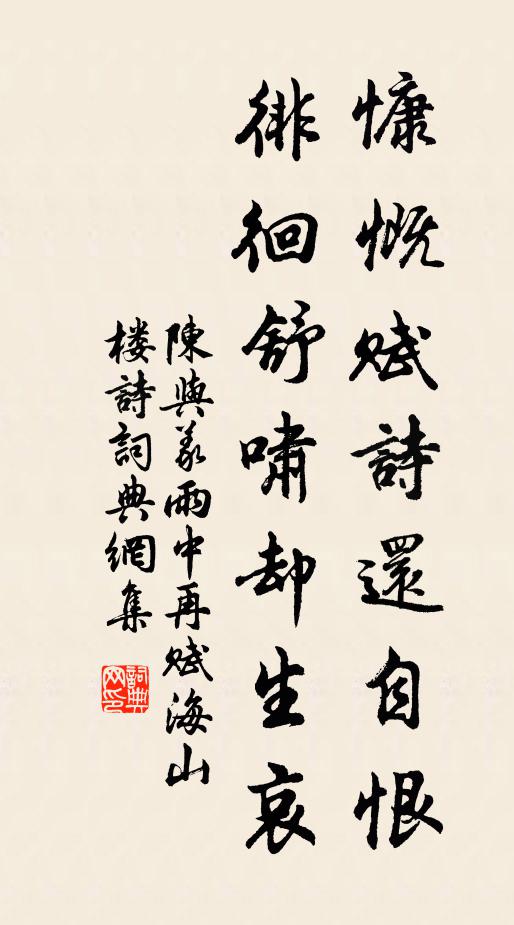 慷慨賦詩還自恨
徘徊舒嘯却生哀
陳與義雨中再賦海山
楼詩詞典網集
詞典
网印